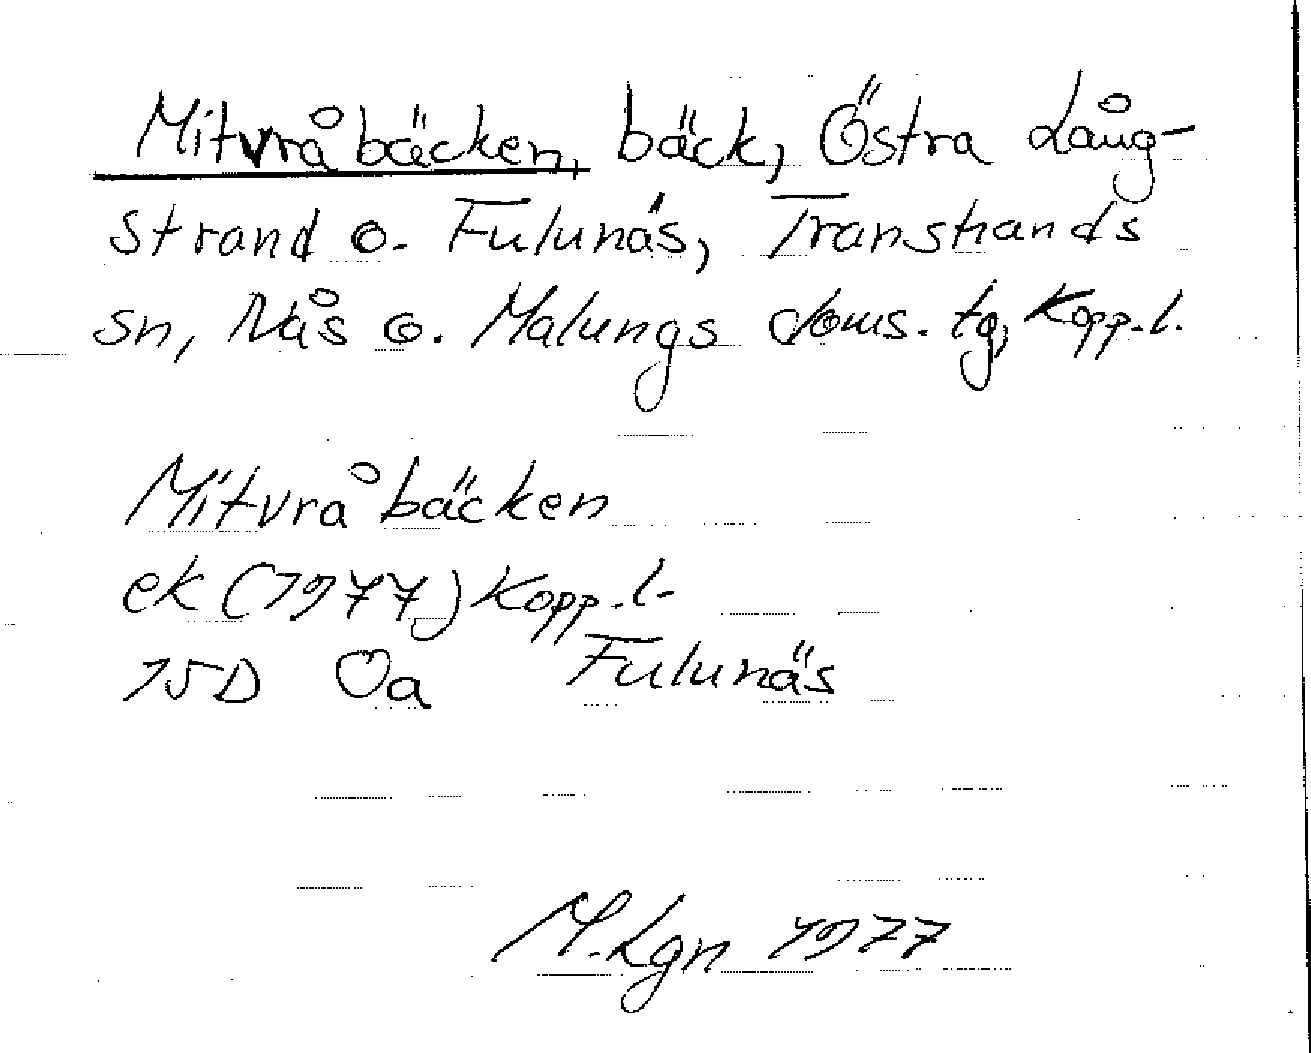 Mitvråbäcken, bäck, Östra Lång-
strand o. Fulunäs, Transtrands
sn, Nås o. Malungs doms. tg, Kopp.l.
Mitvråbäcken
ek (1977) Kopp.l.
15D Oa Fulunäs
M.Lgn 1977